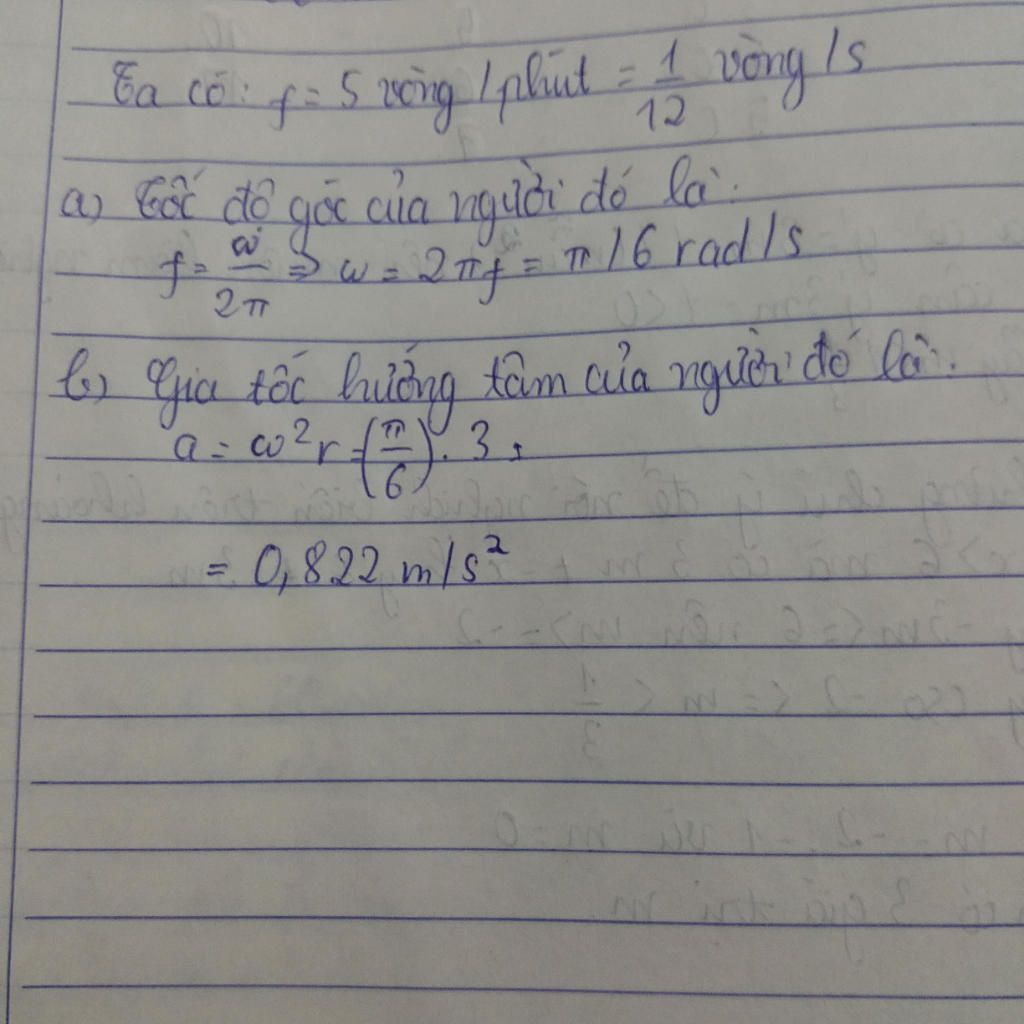 Ta có: f = 5 vòng / phút = 1/12 vòng / s
a) Tốc độ góc của người đó là:
f = ω/2π => ω = 2πf = π / 6 rad / s
b) Gia tốc hướng tâm của người đó là:
a = ω²r = (π/6) . 3 ,
= 0,822 m / s²